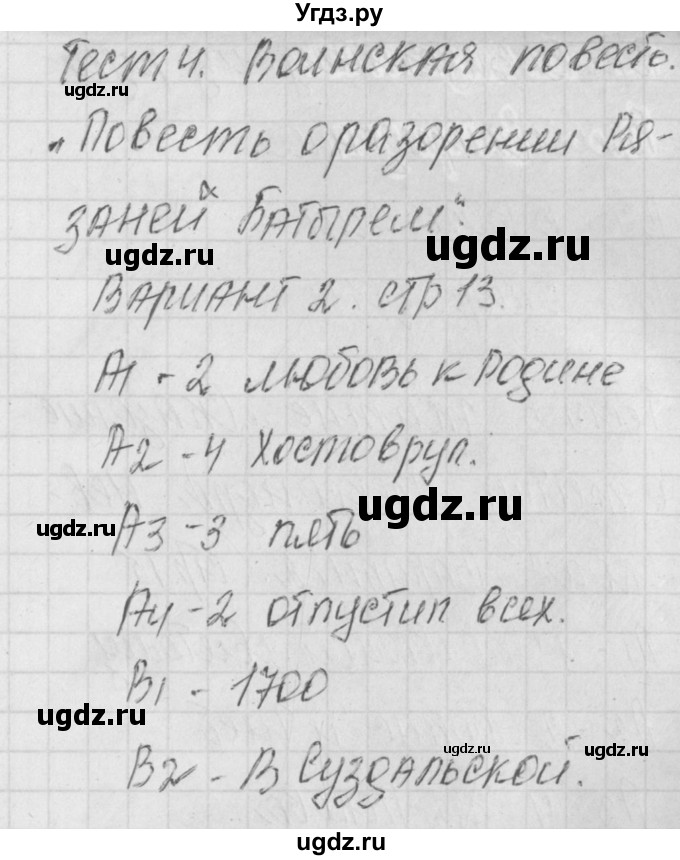 Угдз.ру
Тест 4. Воинская повесть.
ugdz.ru
„Повесть о разорении Ря-
заней Батырем".
ugdz.ru ugdz.ru
Вариант 2. стр 13.
А1 - 2 любовь к Родине
А2 - 4 Хостоврул.
ugdz.ru
ugdz.ru
А3 - 3 пять
А4 - 2 отпустил всех.
В1 - 1700
ugdz.ru
ugdz.ru ugdz.ru
В2 - В Суздальской.
ugdz.ru